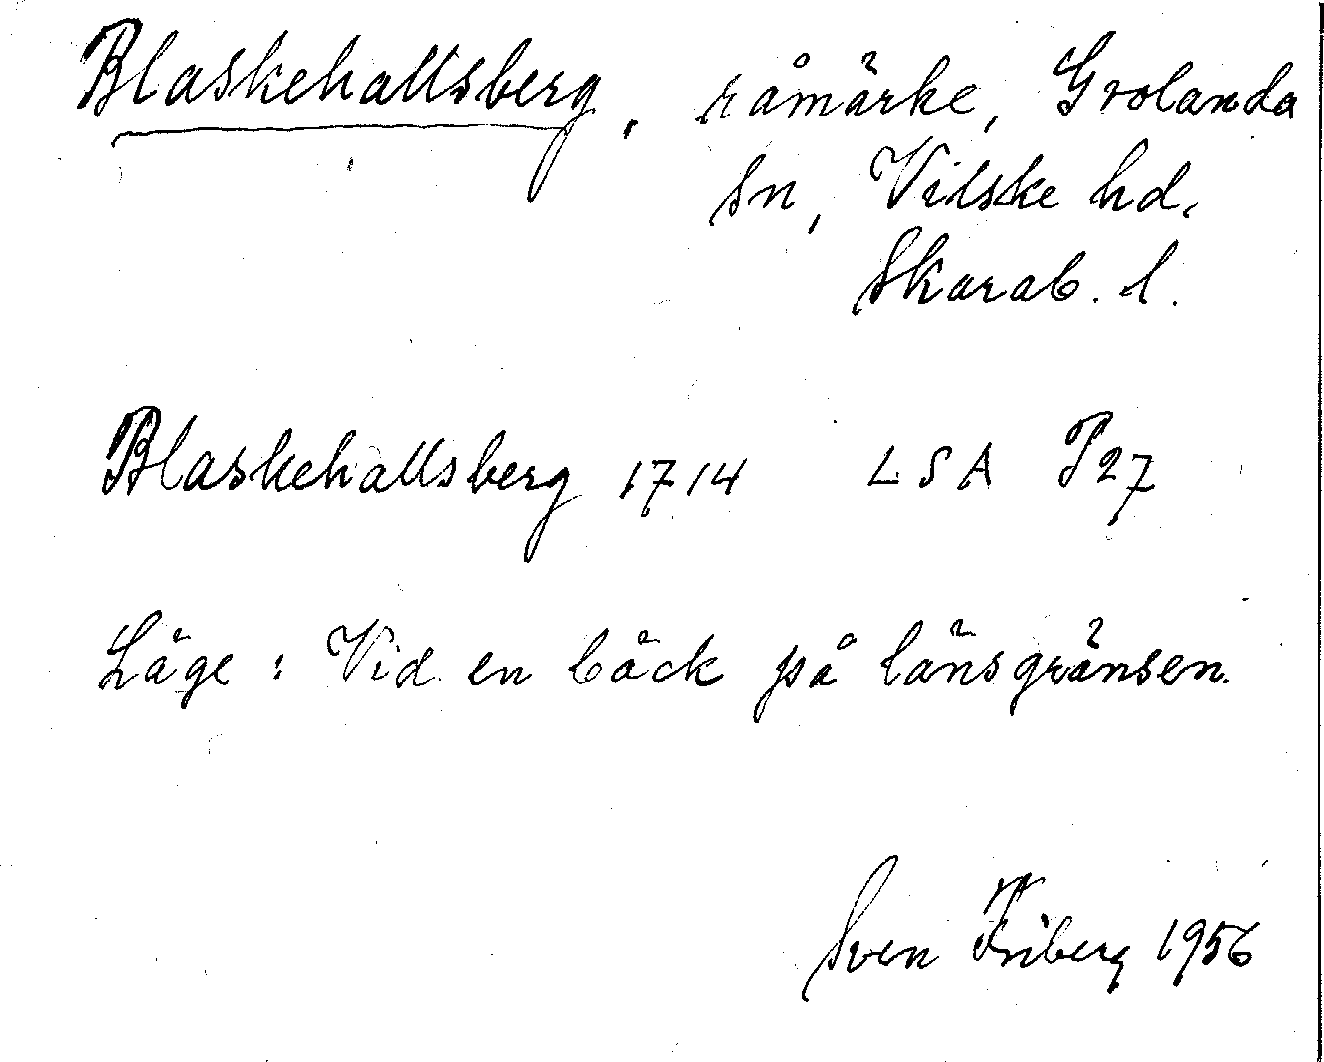 Blaskehallsberg, råmärke, Grolanda
sn, Vilske hd,
Skarab. l.
Blaskehallsberg 1714 LSA P27
Läge: Vid en bäck på länsgränsen.
Sven Friberg 1956